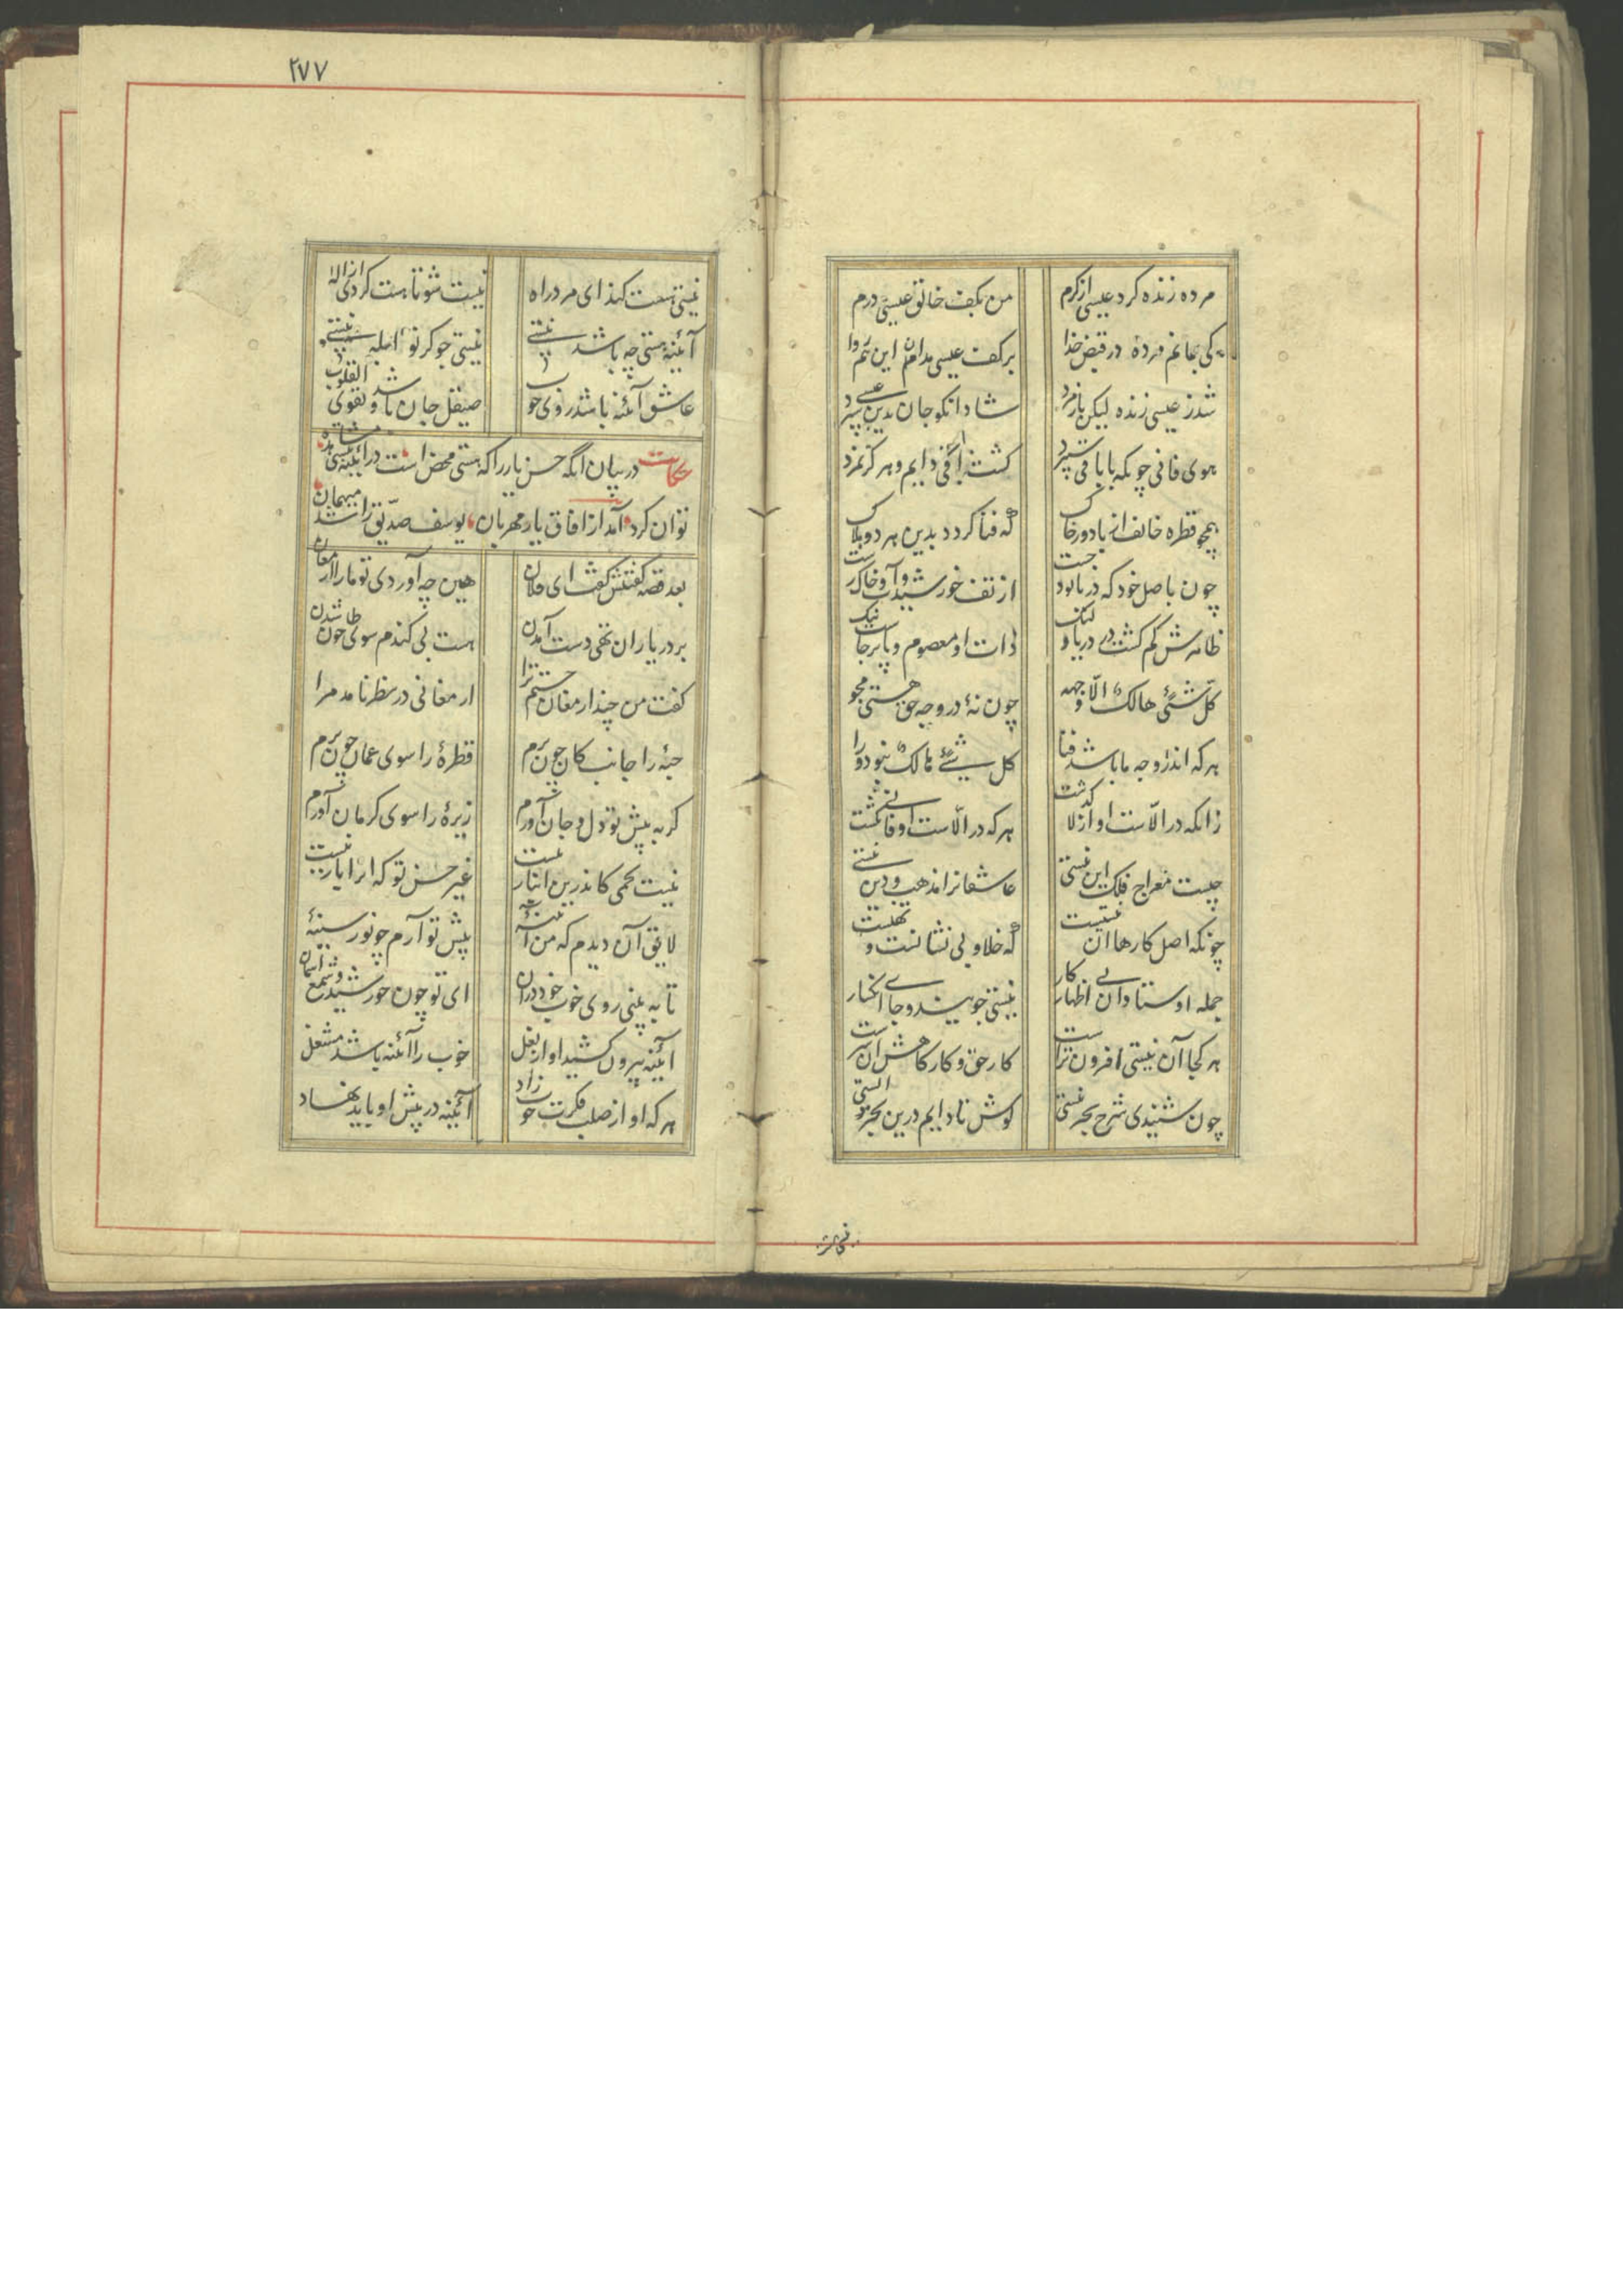 مرده زنده کرد عیسی از کرم من بکف خالق عیسی درم
کی بمانم مرده در قبض خدا بر کف عیسی مدان این هم روا
شد ز عیسی زنده لیکن باز مرد شاد آنکو جان بدین عیسی سپرد
هوی فانی چونکه با باقی سپرد کشت باقی دایم و هرگز نمرد
همچو قطره خائف از باد و ز خاک که فنا کردد بدین هر دو هلاک
چون باصل خود که دریا بود جست از تف خورشید و آب و خاک رست
ظاهرش کم کشت در دریا و لیک ذات او معصوم و پابرجاست نیک
کل شئی هالک الّا وجهه چون نهٔ در وجه حق هستی مجو
هر که اندر وجه ما باشد فنا کل شیئ هالک نبود ورا
زانکه در الّاست او از لا کذشت هر که در الّاست او فانی نکشت
چیست معراج فلک این نیستی عاشقانرا مذهب و دین نیستی
چونکه اصل کارها آن نیستیست که خلا و بی نشانست و تهیست
جمله اوستادان پی اظهار کار نیستی جویند و جای انکسار
هر کجا آن نیستی افزون ترست کار حق و کارکاهش آن سرست
چون شنیدی شرح بحر نیستی کوش تا دایم درین بحر ایستی
نیستی هست
۲۷۷
نیستی هست کند ای مرد راه نیست شو تا هست کردی از اله
آئینه هستی چه باشد نیستی نیستی جو کر تو ابله نیستی
عاشق آئنه باشد روی خوب صیقل جان باشد و تقوی القلوب
حکایت در بیان آنکه حسن یار را که هستی محض است در آئینه نیستی مشاهده
توان کرد آمد از افاق یار مهربان یوسف صدّیق را شد میهمان
بعد قصه کفتنش کفت ای فلان هین چه آوردی تو ما را ارمغان
بر در یاران تهی دست آمدن هست بی کندم سوی طاحون شدن
کفت من چند ارمغان جستم ترا ارمغانی در نظر نامد مرا
حبهٔ را جانب کان چون برم قطرهٔ را سوی عمان چون برم
زیرهٔ را سوی کرمان آورم کر به پیش تو دل و جان آورم
نیست تخمی کاندرین انبار نیست غیر حسن تو که انرا یار نیست
لایق آن دیدم که من آئینهٔ پیش تو آرم چو نور سینهٔ
تا به بینی روی خوب خود در آن ای تو چون خورشید و شمع آسمان
آینه بیرون کشید او از بغل خوب را آئنه باشد مشتغل
هر که او از صلب فکرت خوب زاد آئینه در پیش او باید نهاد